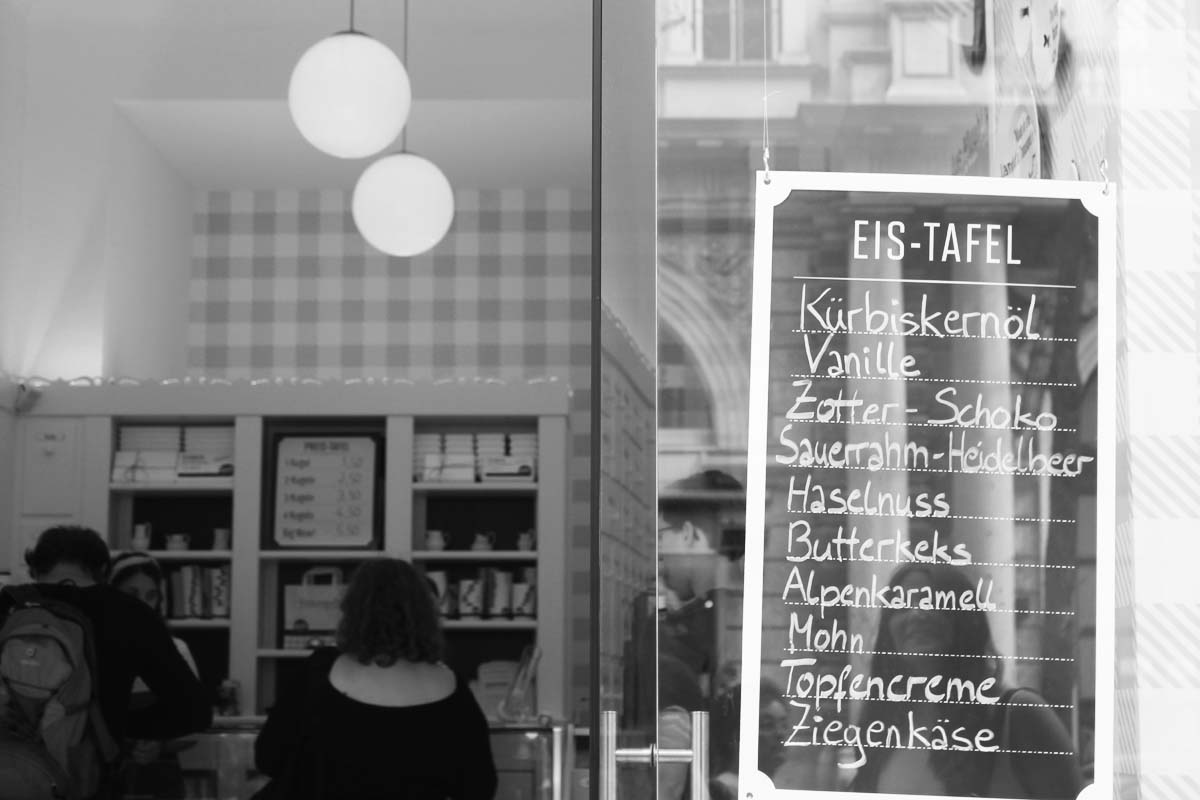 EIS-TAFEL
Kürbiskernöl
Vanille
Zotter - Schoko
Sauerrahm-Heidelbeer
Haselnuss
Butterkeks
Alpenkaramell
Mohn
Topfencreme
Ziegenkäse
PREIS-TAFEL
1 Kugel
2 Kugeln 2,50
3 Kugeln 3,50
4 Kugeln 4,50
5,50